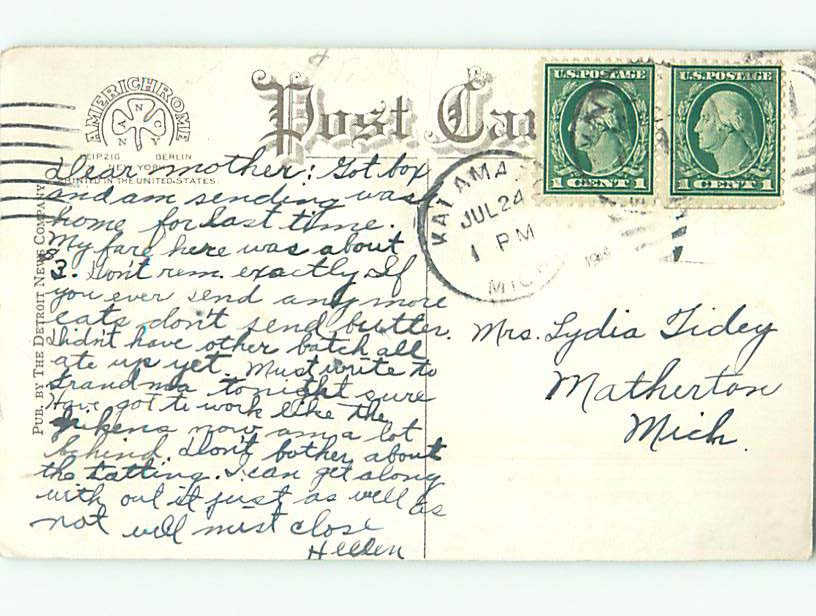 AMERICHROME
A N C N Y
LEIPZIG BERLIN
NEW YORK
PRINTED IN THE UNITED STATES.
Post Car
U.S. POSTAGE
1 CENT 1
U.S. POSTAGE
1 CENT 1
KALAMA
JUL 24
1 PM
MICH
PUB. BY THE DETROIT NEWS COMPANY
Dear mother: Got box
and am sending wash
home for last time.
My fare here was about
$3. Don't rem. exactly If
you ever send any more
eats don't send butter.
Didn't have other batch all
ate up yet. Must write to
Grandma tonight sure
Have got to work like the
dickens now am a lot
behind. Don't bother about
the tatting. I can get along
with out it just as well as
not will must close
Hellen
Mrs. Lydia Tidey
Matherton
Mich.